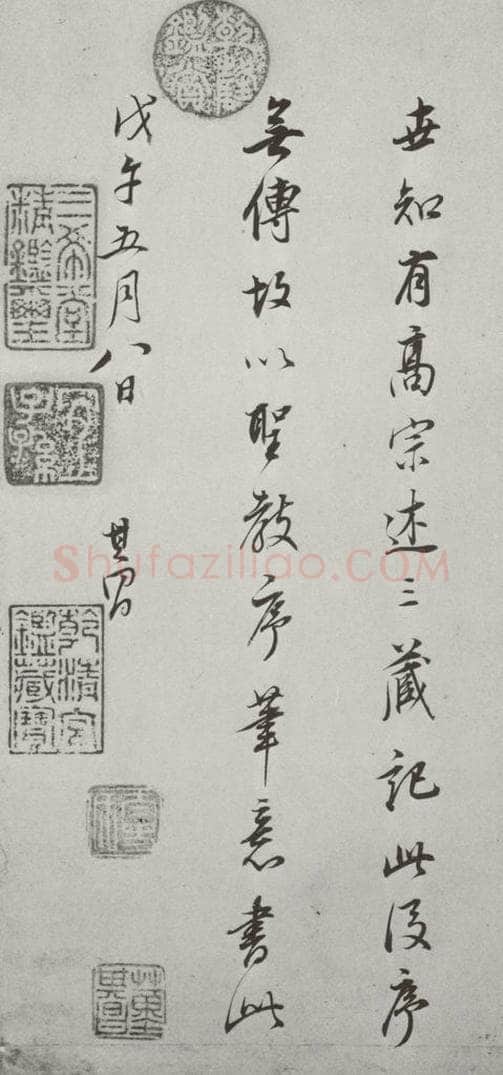 世知有高宗述三藏記此後序
無傳故以聖教序筆意書此
戊午五月八日
其昌
乾隆鑑賞
三希堂精鑑璽
宜子孫
乾清宮鑑藏寶
董其昌
Shufaziliao.COM